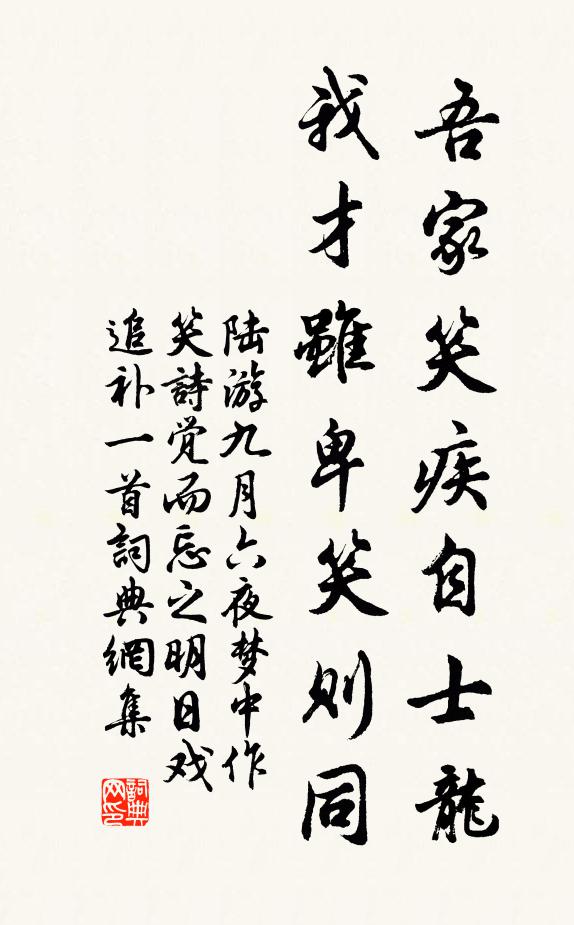 吾家笑疾自士龍
我才雖卑笑则同
陆游九月六夜梦中作
笑詩觉而忘之明日戏
追补一首詞典網集
詞典
网印